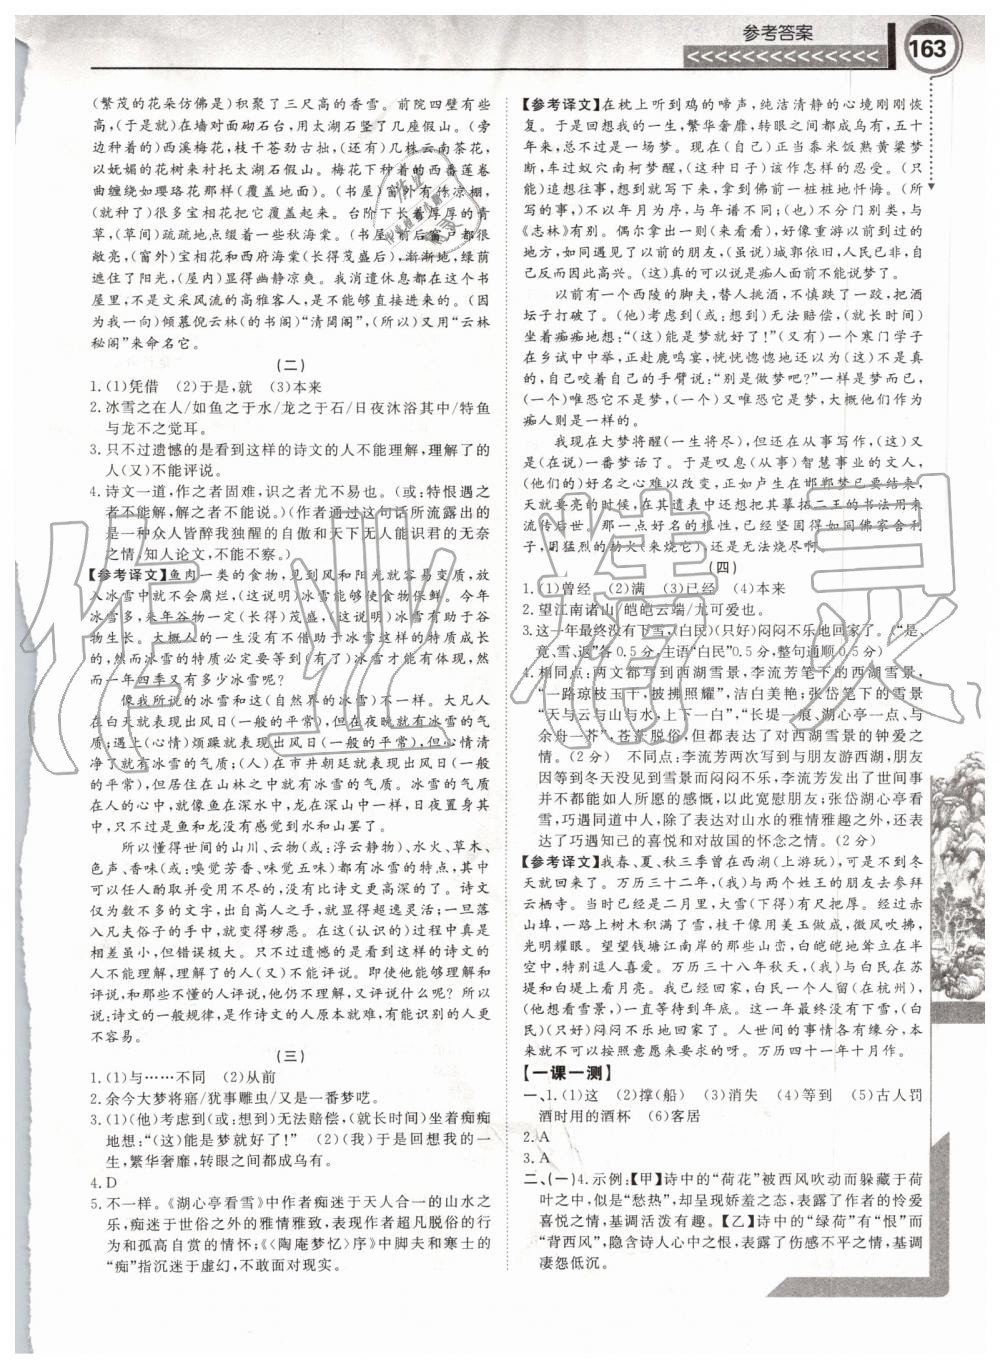 参考答案
163
(繁茂的花朵仿佛是)积聚了三尺高的香雪。前院四壁有些
高,(于是)在墙对面砌石台,用太湖石竖了几座假山。(旁
边种着的)西溪梅花,枝干苍劲古拙,(还有)几株云南茶花,
以妩媚的花树来衬托太湖石假山。梅花下栽种的西番莲卷
曲缠绕如璎珞花那样(覆盖地面)。(书屋)窗外有竹凉棚,
(就种了)很多宝相花把它覆盖起来。台阶下长着厚厚的青
草,(草间)疏疏地点缀着一些秋海棠。(书屋)前后窗户都很
敞亮,(窗外)宝相花和西府海棠(长得茂盛),渐渐地,绿荫
遮住了阳光,(屋内)显得幽静凉爽。我消遣休息都在这个书
屋里,不是文采风流的高雅客人,是不能够直接进来的。(因
为我一向)倾慕倪云林(的书阁)“清閟阁”,(所以)又用“云林
秘阁”来命名它。
(二)
1. (1)凭借 (2)于是,就 (3)本来
2. 冰雪之在人/如鱼之于水/龙之于石/日夜沐浴其中/特鱼
与龙不之觉耳。
3. 只不过遗憾的是看到这样的诗文的人不能理解,理解了的
人(又)不能评说。
4. 诗文一道,作之者固难,识之者尤不易也。(或:特恨遇之
者不能解,解之者不能说。)(作者通过这句话所流露出的
是一种众人皆醉我独醒的自傲和天下无人能识君的无奈
之情,知人论文,不能不察。)
【参考译文】鱼肉一类的食物,见到风和阳光就容易变质,放
入冰雪中就不会腐烂,(这说明)冰雪能够使食物保鲜。今年
冰雪多,来年谷物一定(长得)茂盛,(这说明)冰雪有助于谷
物生长。大概人的一生没有不依靠这样的物质成长
的,然而冰雪的特质必定要等到(有了)冰雪才具有,那么
一年四季又有多少冰雪呢?
像我所说的冰雪和这(自然界的冰雪)不一样。大凡人
在白天就表现出风日(一般的平常),但在夜晚有冰雪的气
质;遇上(心情)烦躁就表现出风日(一般的平常),但心情清
净了就有冰雪的气质;(人)在市井朝廷就表现出风日(一般
的平常),但居住在山林就有冰雪的气质。冰雪(的气质)存
在人的心中,就像鱼在深水中,龙在深山中一样,日夜置身其
中,只不过鱼和龙没有意识到罢了。
所以懂得世间的山川、云物(或:浮云静物)、水火、草木、
色声、香味(或:嗅觉芳香、味觉五味)都有冰雪的特点,其中
有可以供人们享受并受用不尽的,没有比诗文更高深的了。诗文
仅仅为数不多的文字,出自高人之手,就显得超凡灵秀;一旦落
入凡夫俗子的手中,就变得秽恶。在这(认识的)过程中,差别
虽然细微,但错误极大。只不过遗憾的是看到这样的诗文的
人不能理解,理解了的人(又)不能评说。即使他能够理解
并和那些不懂的人评说,他仍不理解,又评说什么呢?所以
说:诗文的一般规律,是作诗文的人原本就难,有能识别的人更
不容易。
(三)
1. (1)与……不同 (2)从前
2. 余今大梦将寤/犹事雕虫/又是一番梦呓。
3. (1)(他)考虑到(或:想到)无法赔偿,(就长时间)坐着痴痴
地想:“(这)能是梦就好了!” (2)(我)于是回想我的一
生,繁华奢靡,转眼之间都成乌有。
4. D
5. 不一样。《湖心亭看雪》中作者痴迷于天人合一的山水之
乐,痴迷于世俗之外的雅情雅致,表现作者超凡脱俗的行
为和孤高自赏的情怀;《〈陶庵梦忆〉序》中脚夫和寒士的
“痴”指沉迷于虚幻,不敢面对现实。
【参考译文】在枕上听到鸡的啼声,纯洁清静的心境刚刚恢
复。于是回想我的一生,繁华奢靡,转眼之间都成乌有,五十
年来,总只不过是一场梦。现在(自己)正当黍米饭熟黄粱梦
断,车过蚁穴南柯梦醒,(这种日子)该作怎样的忍受。(只
能)追想往事,想到就写下来,拿到佛前一桩桩地忏悔。(所
写的事),不以年月为序,与年谱不同;不分门别类,与
《志林》有别。偶尔拿出一则(来看看),好像重游以前去过的
地方,如同遇见了以前的朋友,(虽说)城郭依旧,人民已非,自
己反而因此高兴。(这)真的可以说是痴人面前不能说梦了。
以前有一个西陵的脚夫,替人挑酒,不慎跌了一跤,把酒
坛子打破了。(他)考虑到(或:想到)无法赔偿,(就长时间)
坐着痴痴地想:“(这)能是梦就好了!”(又有)一个寒门学子
在乡试中中举,正赴鹿鸣宴,恍恍惚惚地还以为(这)不是真
的,自己咬着自己的手臂说:“别是做梦吧?”一样是梦而已,
(一个)唯恐它不是梦,(一个)又唯恐它是梦,但他们作为
痴人则是一样的。
我现在大梦将醒(一生将尽),但还在从事写作,(这)又
是(在说)一番梦话了。于是叹息(从事)智慧事业的文人,
(他们的)好名之心难以改变,正如卢生在邯郸梦已要结束,
天就要亮的时候,在其遗表中还想把其摹拓二王的书法用来
流传后世。那一点好名的根性,已经坚固得如同佛家舍利
子,用猛烈的劫火(来烧它)还是无法烧尽啊。
(四)
1. (1)曾经 (2)满 (3)已经 (4)本来
2. 望江南诸山/皑皑云端/尤可爱也。
3. 这一年最终没有下雪,(白民)(只好)闷闷不乐地回家了。(“是、
竟、雪、返”各0.5分,主语“白民”0.5分,整句通顺0.5分)
4. 相同点:两文都写到了西湖雪景,李流芳笔下的雪景
“一路琼枝玉干,披拂照耀”,洁白美艳;张岱笔下的雪景
“天与云与山与水,上下一白”,“长堤一痕、湖心亭一点、与
余舟一芥”,苍茫脱俗,但都表达了对西湖雪景的钟爱之
情。(2分) 不同点:李流芳两次写到与友游西湖,朋友
因等到冬天没能见到雪景而闷闷不乐,李流芳发出了世间事
并不都能如人所愿的感慨,以此宽慰朋友;张岱湖心亭看
雪,巧遇同道中人,除了表达对山水的雅情雅趣之外,还表
达了巧遇知己的喜悦和对故国的怀念之情。(2分)
【参考译文】我春、夏、秋三季曾在西湖(上游玩),可是不到冬
天就回来了。万历三十二年,(我)与两个姓王的朋友去参拜
云栖寺。当时已经是二月了,大雪盈尺。(等到)走出赤
山埠,一路上树木落满了雪,枝干像用美玉做成,微风吹拂,
光明耀眼。望望钱塘江南岸的那些山峦,白皑皑地耸立在半
空中,特别可爱。万历三十八年秋天,(我)与白民在苏
堤和白堤上看月亮。我已经厌倦了,白民独自留(在杭州),
(他想看雪景,)一直等待到冬。这一年最终没有下雪,(白
民)(只好)闷闷不乐地回家了。人世间的事情各有缘分,本
来就不可以按照意愿来要求的呀。万历四十一年十月作。
【一课一测】
一、1. (1)这 (2)撑(船) (3)消失 (4)等到 (5)古人罚
酒时用的酒杯 (6)客居
2. A
3. A
二、(一)4. 示例:【甲】诗中的“荷花”被西风吹动而躲藏于荷
叶之中,似是“愁热”,却呈现娇羞之态,表露了作者的怜爱
喜悦之情,基调活泼轻松。【乙】诗中的“绿荷”有“恨”而
“背西风”,隐含诗人心中之恨,表露了伤感不平之情,基调
凄怨低沉。
作业精灵